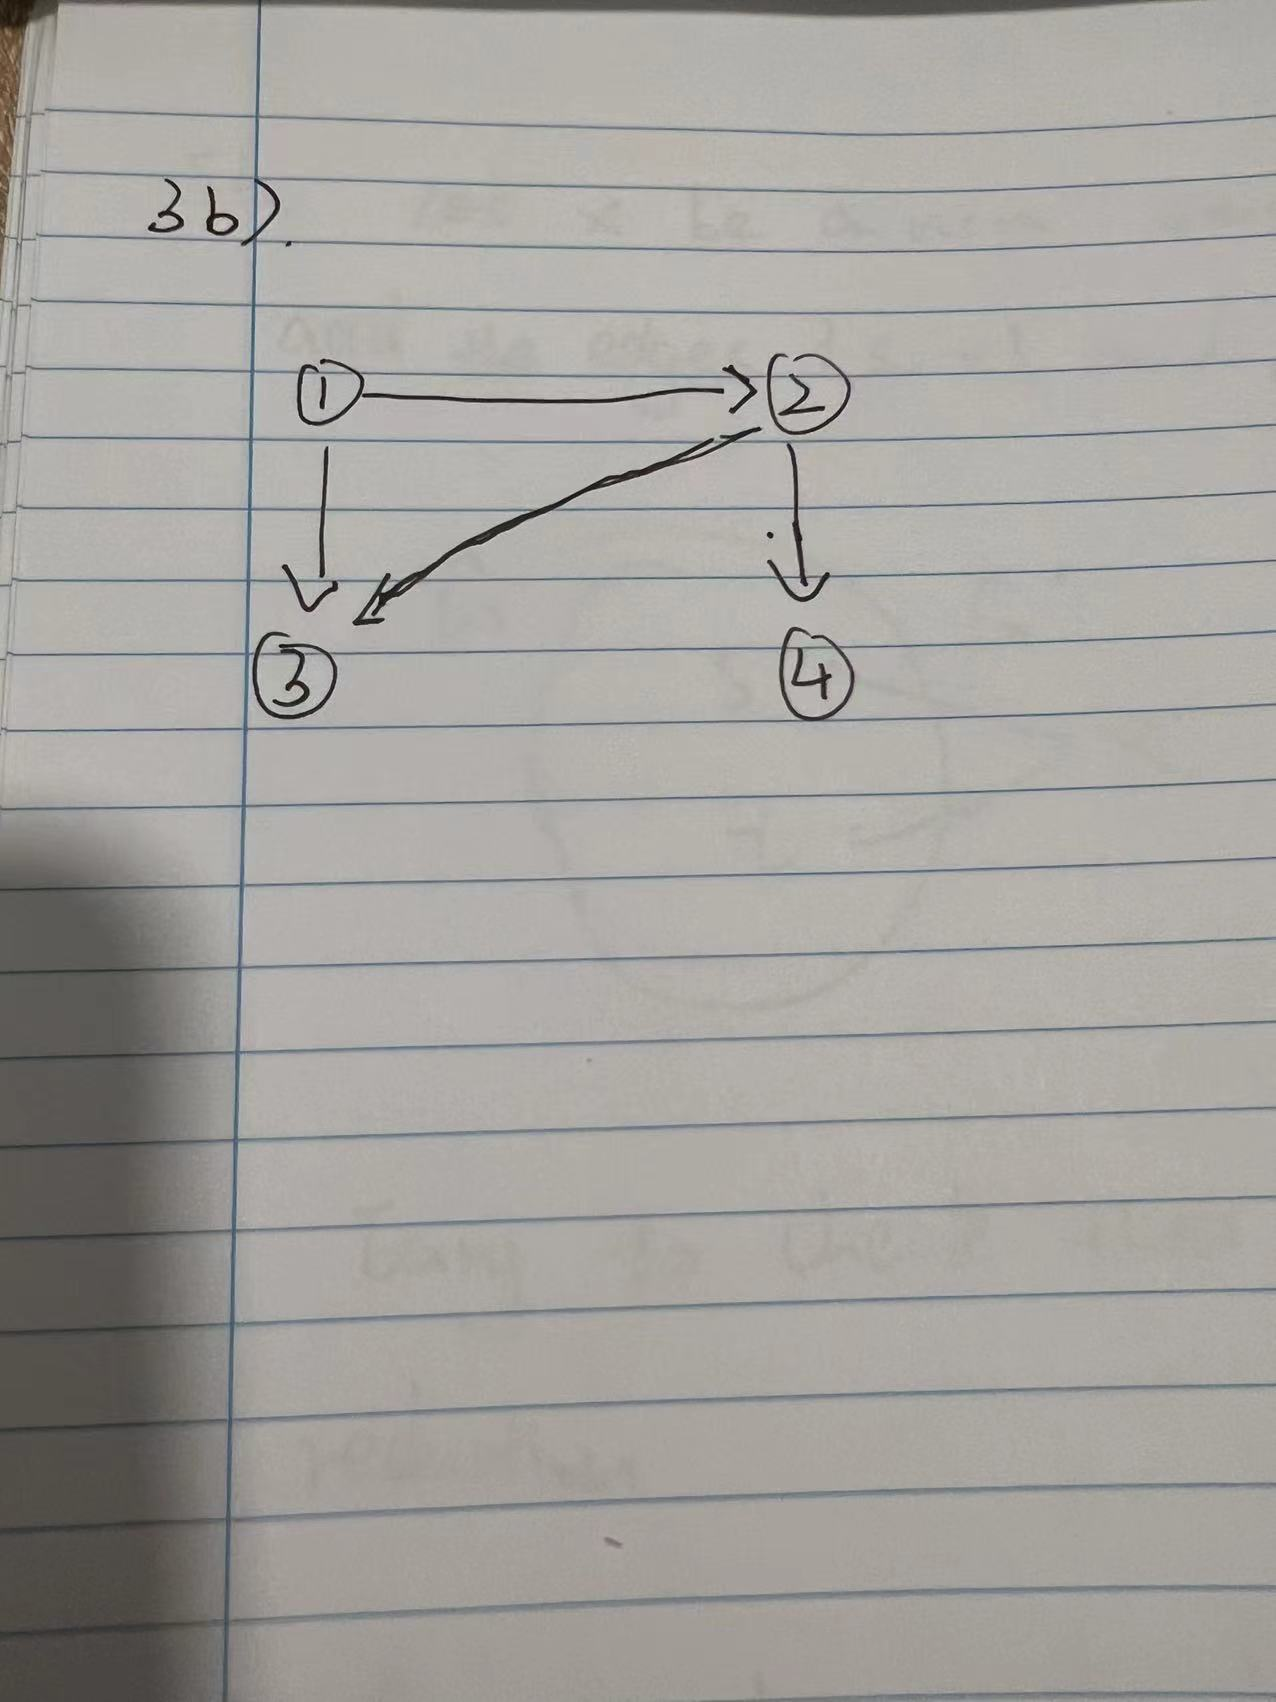 3b).
1 2
3 4